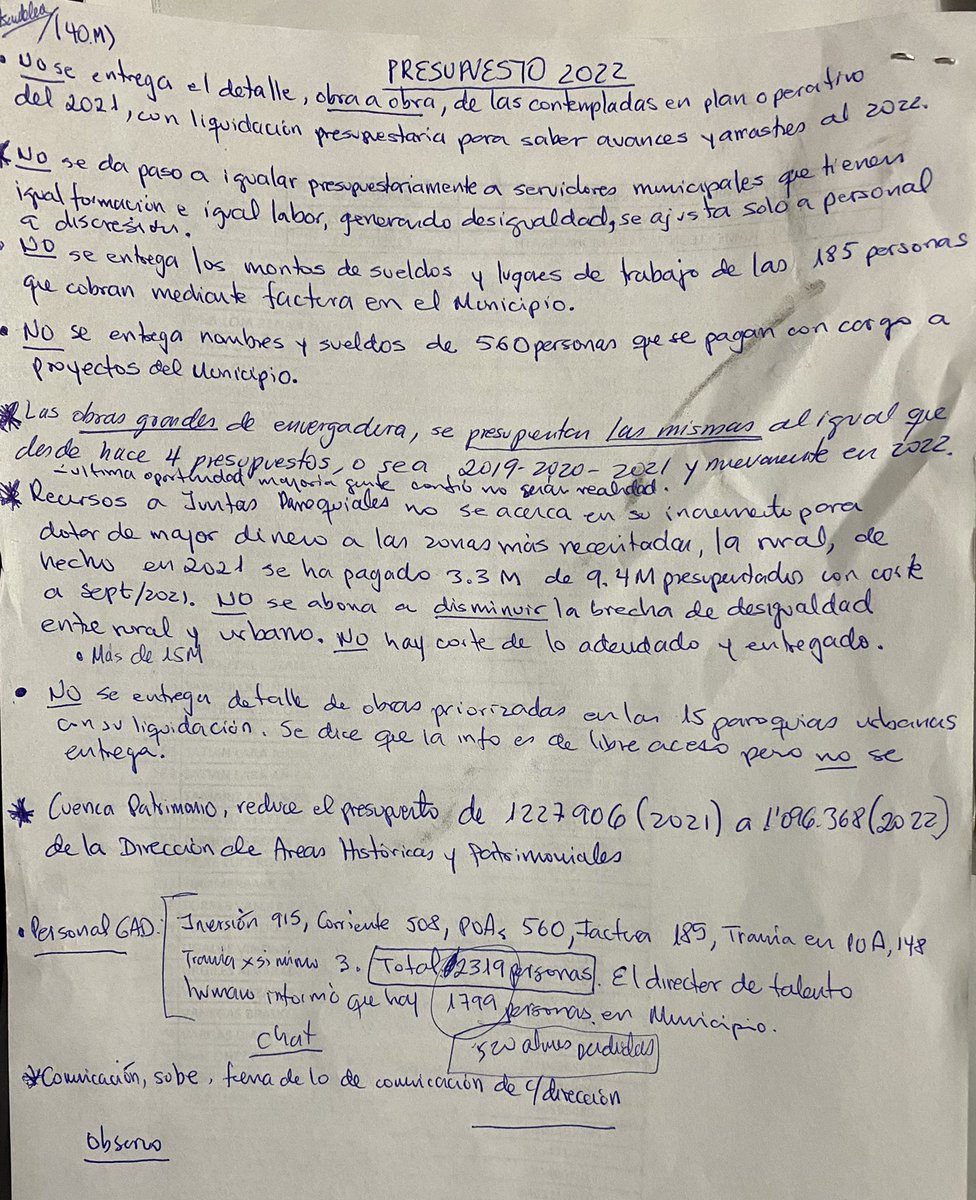 Asamblea
/(40.M)
PRESUPUESTO 2022
• NO se entrega el detalle, obra a obra, de las contempladas en plan operativo
del 2021, con liquidación presupuestaria para saber avances y arrastres al 2022.
* NO se da paso a igualar presupuestariamente a servidores municipales que tienen
igual formación e igual labor, generando desigualdad, se ajusta solo a personal
a discresión.
• NO se entrega los montos de sueldos y lugares de trabajo de las 185 personas
que cobran mediante factura en el Municipio.
• NO se entrega nombres y sueldos de 560 personas que se pagan con cargo a
proyectos del Municipio.
* Las obras grandes de envergadura, se presupuentan las mismas al igual que
desde hace 4 presupuestos, o sea 2019-2020-2021 y nuevamente en 2022.
última oportunidad mayoría gente confió no serán realidad.
* Recursos a Juntas Parroquiales no se acerca en su incremento para
dotar de mayor dinero a las zonas más necesitadas, la rural, de
hecho en 2021 se ha pagado 3.3M de 9.4M presupuestados con corte
a Sept/2021. NO se abona a disminuir la brecha de desigualdad
entre rural y urbano. NO hay corte de lo adeudado y entregado.
• Más de 15M
• NO se entrega detalle de obras priorizadas en las 15 paroquias urbanas
con su liquidación. Se dice que la info es de libre acceso pero no se
entrega.
* Cuenca Patrimonio, reduce el presupuesto de 1227906 (2021) a 1'096.368 (2022)
de la Dirección de Areas Históricas y Patrimoniales
• Personal GAD: Inversión 915, Corriente 508, POAs 560, Factura 185, Tranvia en POA, 148
Tranvia x si mismo 3. Total 2319 personas. El director de talento
humano informó que hay 1799 personas en Municipio.
chat
520 almas perdidas
* Comunicación, sube, fuera de lo de comunicación de c/dirección
Observo